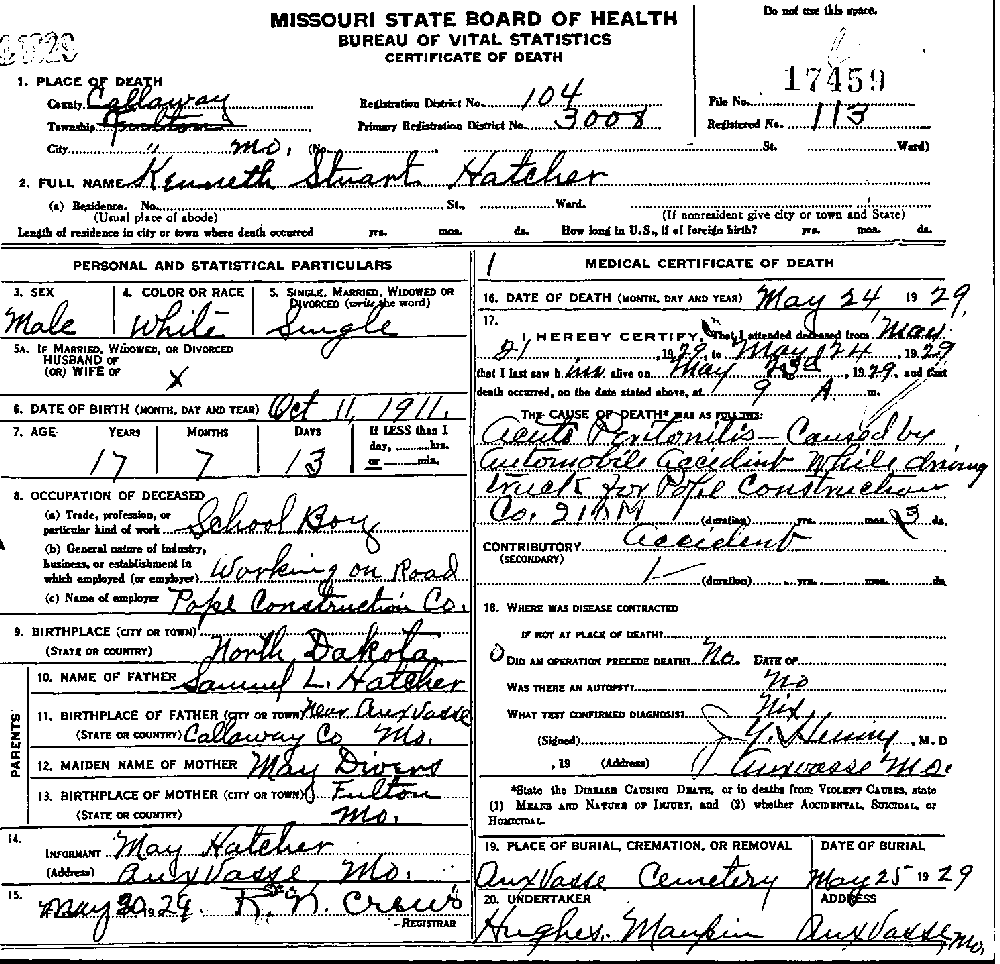 MISSOURI STATE BOARD OF HEALTH
BUREAU OF VITAL STATISTICS
CERTIFICATE OF DEATH
Do not use this space.
17459
1. PLACE OF DEATH
County Callaway
Registration District No. 104
File No.
Township Fulton
Primary Registration District No. 3008
Registered No. 113
City " Mo. (No. St. Ward)
2. FULL NAME Kenneth Stuart Hatcher
(a) Residence. No. St., Ward.
(Usual place of abode) (If nonresident give city or town and State)
Length of residence in city or town where death occurred yrs. mos. ds. How long in U.S., if of foreign birth? yrs. mos. ds.
PERSONAL AND STATISTICAL PARTICULARS
3. SEX
Male
4. COLOR OR RACE
White
5. SINGLE, MARRIED, WIDOWED OR
DIVORCED (write the word)
Single
5A. IF MARRIED, WIDOWED, OR DIVORCED
HUSBAND OF
(OR) WIFE OF
X
6. DATE OF BIRTH (MONTH, DAY AND YEAR) Oct 11, 1911.
7. AGE YEARS MONTHS DAYS
17 7 13
If LESS than 1
day, hrs.
or min.
8. OCCUPATION OF DECEASED
(a) Trade, profession, or
particular kind of work School Boy
(b) General nature of industry,
business, or establishment in
which employed (or employer) Working on Road
(c) Name of employer Pope Construction Co.
9. BIRTHPLACE (CITY OR TOWN)
(STATE OR COUNTRY) North Dakota
PARENTS
10. NAME OF FATHER Samuel L. Hatcher
11. BIRTHPLACE OF FATHER (CITY OR TOWN) Near Aux Vasse
(STATE OR COUNTRY) Callaway Co Mo.
12. MAIDEN NAME OF MOTHER May Divers
13. BIRTHPLACE OF MOTHER (CITY OR TOWN) Fulton
(STATE OR COUNTRY) Mo.
14.
INFORMANT May Hatcher
(Address) Aux Vasse Mo.
15.
May 30 1929. R. N. Crews
REGISTRAR
1
MEDICAL CERTIFICATE OF DEATH
16. DATE OF DEATH (MONTH, DAY AND YEAR) May 24 1929
17.
I HEREBY CERTIFY, That I attended deceased from May
21, 1929, to May 24, 1929
that I last saw him alive on May 23d, 1929, and that
death occurred, on the date stated above, at 9 A m.
THE CAUSE OF DEATH* WAS AS FOLLOWS:
Acute Peritonitis - Caused by
automobile accident while driving
truck for Pope Construction
Co. (duration) yrs. mos. 3 ds.
CONTRIBUTORY Accident
(SECONDARY)
(duration) yrs. mos. ds.
18. WHERE WAS DISEASE CONTRACTED
IF NOT AT PLACE OF DEATH?
DID AN OPERATION PRECEDE DEATH? No. DATE OF
WAS THERE AN AUTOPSY? No
WHAT TEST CONFIRMED DIAGNOSIS? Nix
(Signed) , M. D
, 19 (Address) Auxvasse Mo.
*State the DISEASE CAUSING DEATH, or in deaths from VIOLENT CAUSES, state
(1) MEANS AND NATURE OF INJURY, and (2) whether ACCIDENTAL, SUICIDAL, or
HOMICIDAL.
19. PLACE OF BURIAL, CREMATION, OR REMOVAL
Aux Vasse Cemetery
DATE OF BURIAL
May 25 1929
20. UNDERTAKER
Hughes. Maupin
ADDRESS
Aux Vasse, Mo.